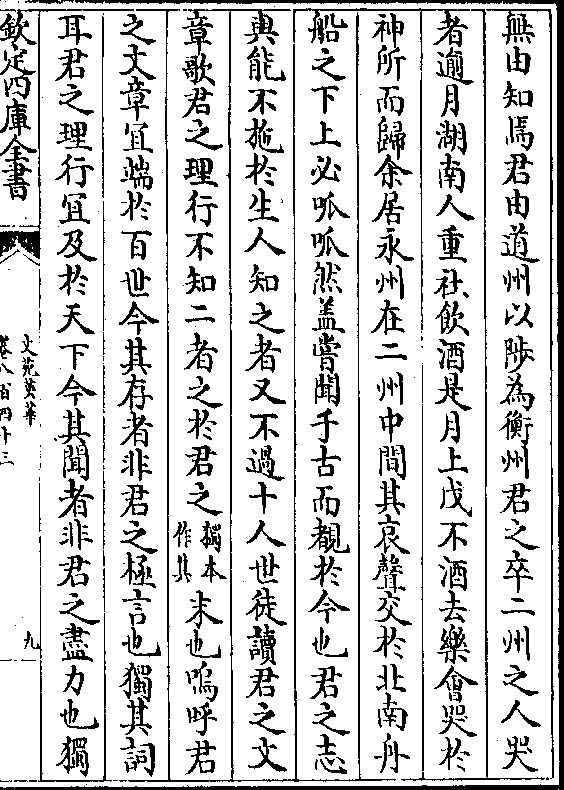 無由知焉君由道州以陟為衡州君之卒二州之人哭
者逾月湖南人重社飲酒是月上戊不酒去樂會哭於
神所而歸余居永州在二州中間其哀聲交於北南舟
船之下上必呱呱然盖嘗聞于古而覩於今也君之志
與能不施於生人知之者又不過十人世徒讀君之文
章歌君之理行不知二者之於君之獨本作其末也嗚呼君
之文章宜端於百世今其存者非君之極言也獨其詞
耳君之理行宜及於天下今其聞者非君之盡力也獨
欽定四庫全書
文苑英華
卷八百四十三
九